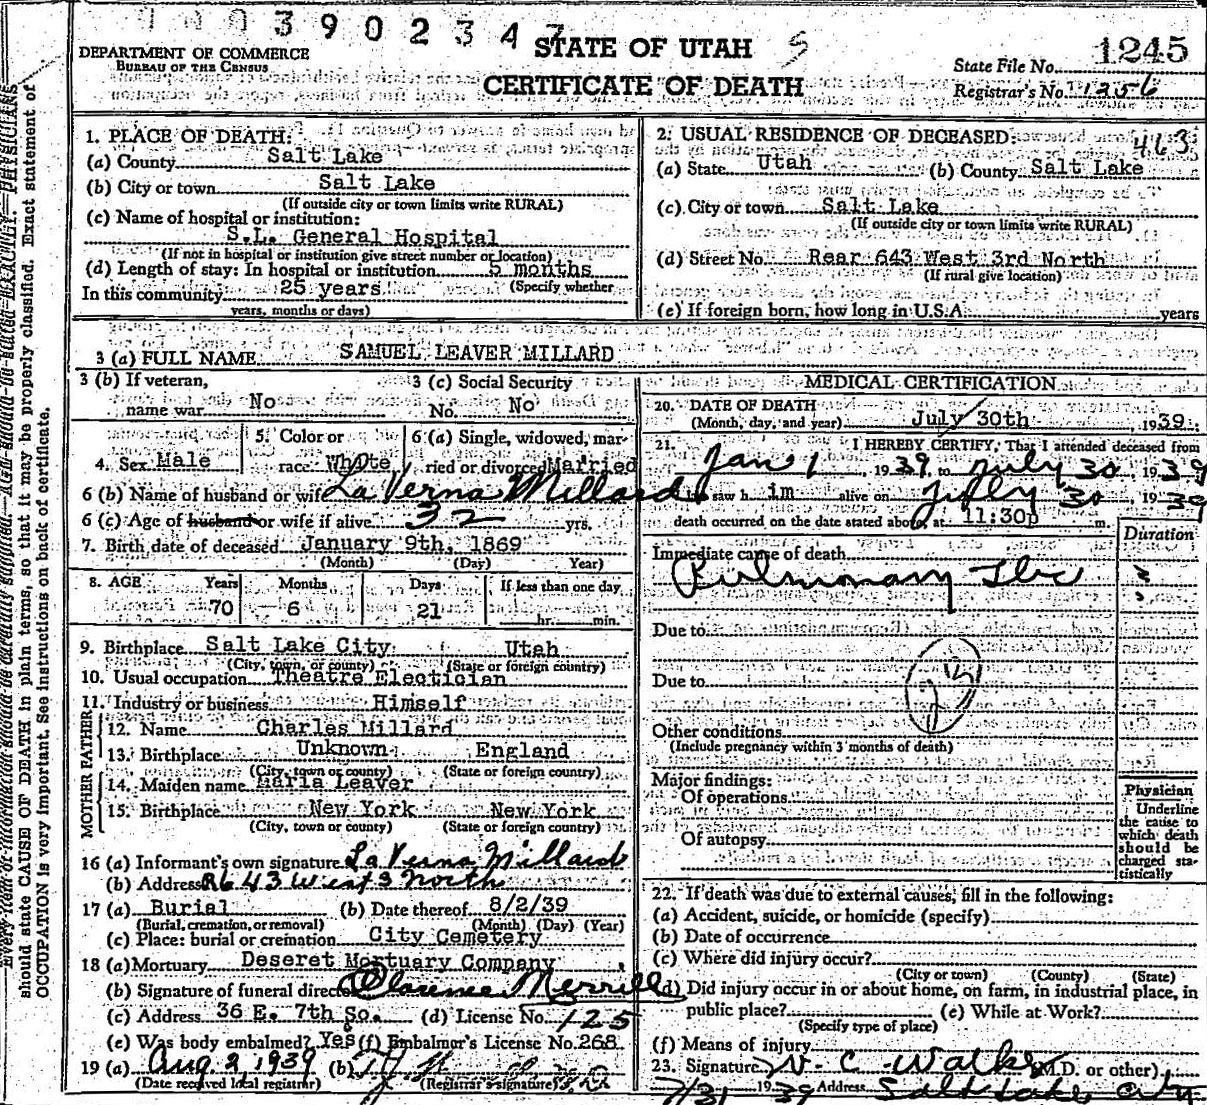 390234
DEPARTMENT OF COMMERCE
BUREAU OF THE CENSUS
STATE OF UTAH
CERTIFICATE OF DEATH
State File No. 1245
Registrar's No. 1256
463
1. PLACE OF DEATH:
(a) County Salt Lake
(b) City or town Salt Lake
(If outside city or town limits write RURAL)
(c) Name of hospital or institution:
S.L. General Hospital
(If not in hospital or institution give street number or location)
(d) Length of stay: In hospital or institution 5 months
(Specify whether
In this community 25 years
years, months or days)
2. USUAL RESIDENCE OF DECEASED:
(a) State Utah (b) County Salt Lake
(c) City or town Salt Lake
(If outside city or town limits write RURAL)
(d) Street No. Rear 643 West 3rd North
(If rural give location)
(e) If foreign born, how long in U.S.A. years
3 (a) FULL NAME SAMUEL LEAVER MILLARD
3 (b) If veteran, name war No
3 (c) Social Security No. No
4. Sex Male
5. Color or race White
6 (a) Single, widowed, married or divorced Married
6 (b) Name of husband or wife La Verna Millard
6 (c) Age of husband or wife if alive 32 yrs.
7. Birth date of deceased January 9th, 1869
(Month) (Day) Year)
8. AGE Years Months Days If less than one day
70 6 21 hr. min.
9. Birthplace Salt Lake City Utah
(City, town, or county) (State or foreign country)
10. Usual occupation Theatre Electician
11. Industry or business Himself
FATHER
12. Name Charles Millard
13. Birthplace Unknown England
(City, town or county) (State or foreign country)
MOTHER
14. Maiden name Maria Leaver
15. Birthplace New York New York
(City, town or county) (State or foreign country)
16 (a) Informant's own signature La Verna Millard
(b) Address R643 West 3 North
17 (a) Burial (b) Date thereof 8/2/39
(Burial, cremation, or removal) (Month) (Day) (Year)
(c) Place: burial or cremation City Cemetery
18 (a) Mortuary Deseret Mortuary Company
(b) Signature of funeral director Clarence Merrill
(c) Address 36 E. 7th So. (d) License No. 125
(e) Was body embalmed? Yes (f) Embalmer's License No. 268
19 (a) Aug. 2, 1939 (b)
(Date received local registrar) (Registrar's signature)
MEDICAL CERTIFICATION
20. DATE OF DEATH July 30th 1939
(Month, day, and year)
21. I HEREBY CERTIFY, That I attended deceased from
Jan 1, 1939 to July 30, 1939
I saw h im alive on July 30, 1939
death occurred on the date stated above, at 11:30p m.
Duration
Immediate cause of death
Pulmonary Tbc
Due to
Due to
Other conditions
(Include pregnancy within 3 months of death)
Major findings:
Of operations
Of autopsy
Physician
Underline
the cause to
which death
should be
charged sta-
tistically
22. If death was due to external causes, fill in the following:
(a) Accident, suicide, or homicide (specify)
(b) Date of occurrence
(c) Where did injury occur?
(City or town) (County) (State)
(d) Did injury occur in or about home, on farm, in industrial place, in
public place? (e) While at Work?
(Specify type of place)
(f) Means of injury
23. Signature C. Walker (M.D. or other)
7/31 1939 Address Salt Lake City
should state CAUSE OF DEATH in plain terms, so that it may be properly classified. Exact statement of
OCCUPATION is very important. See instructions on back of certificate.